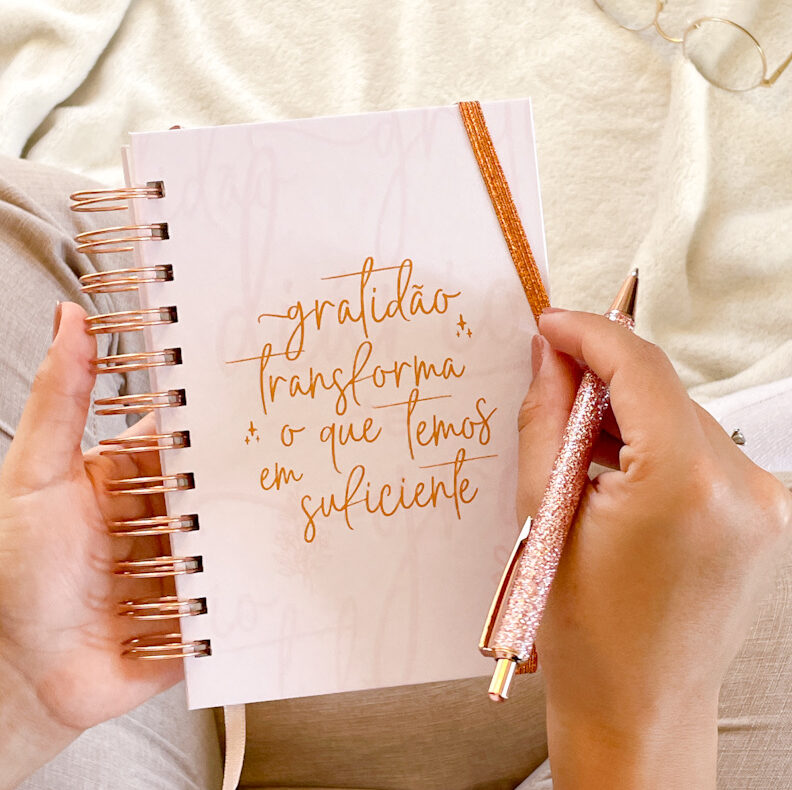 gratidão
transforma
o que temos
em
suficiente